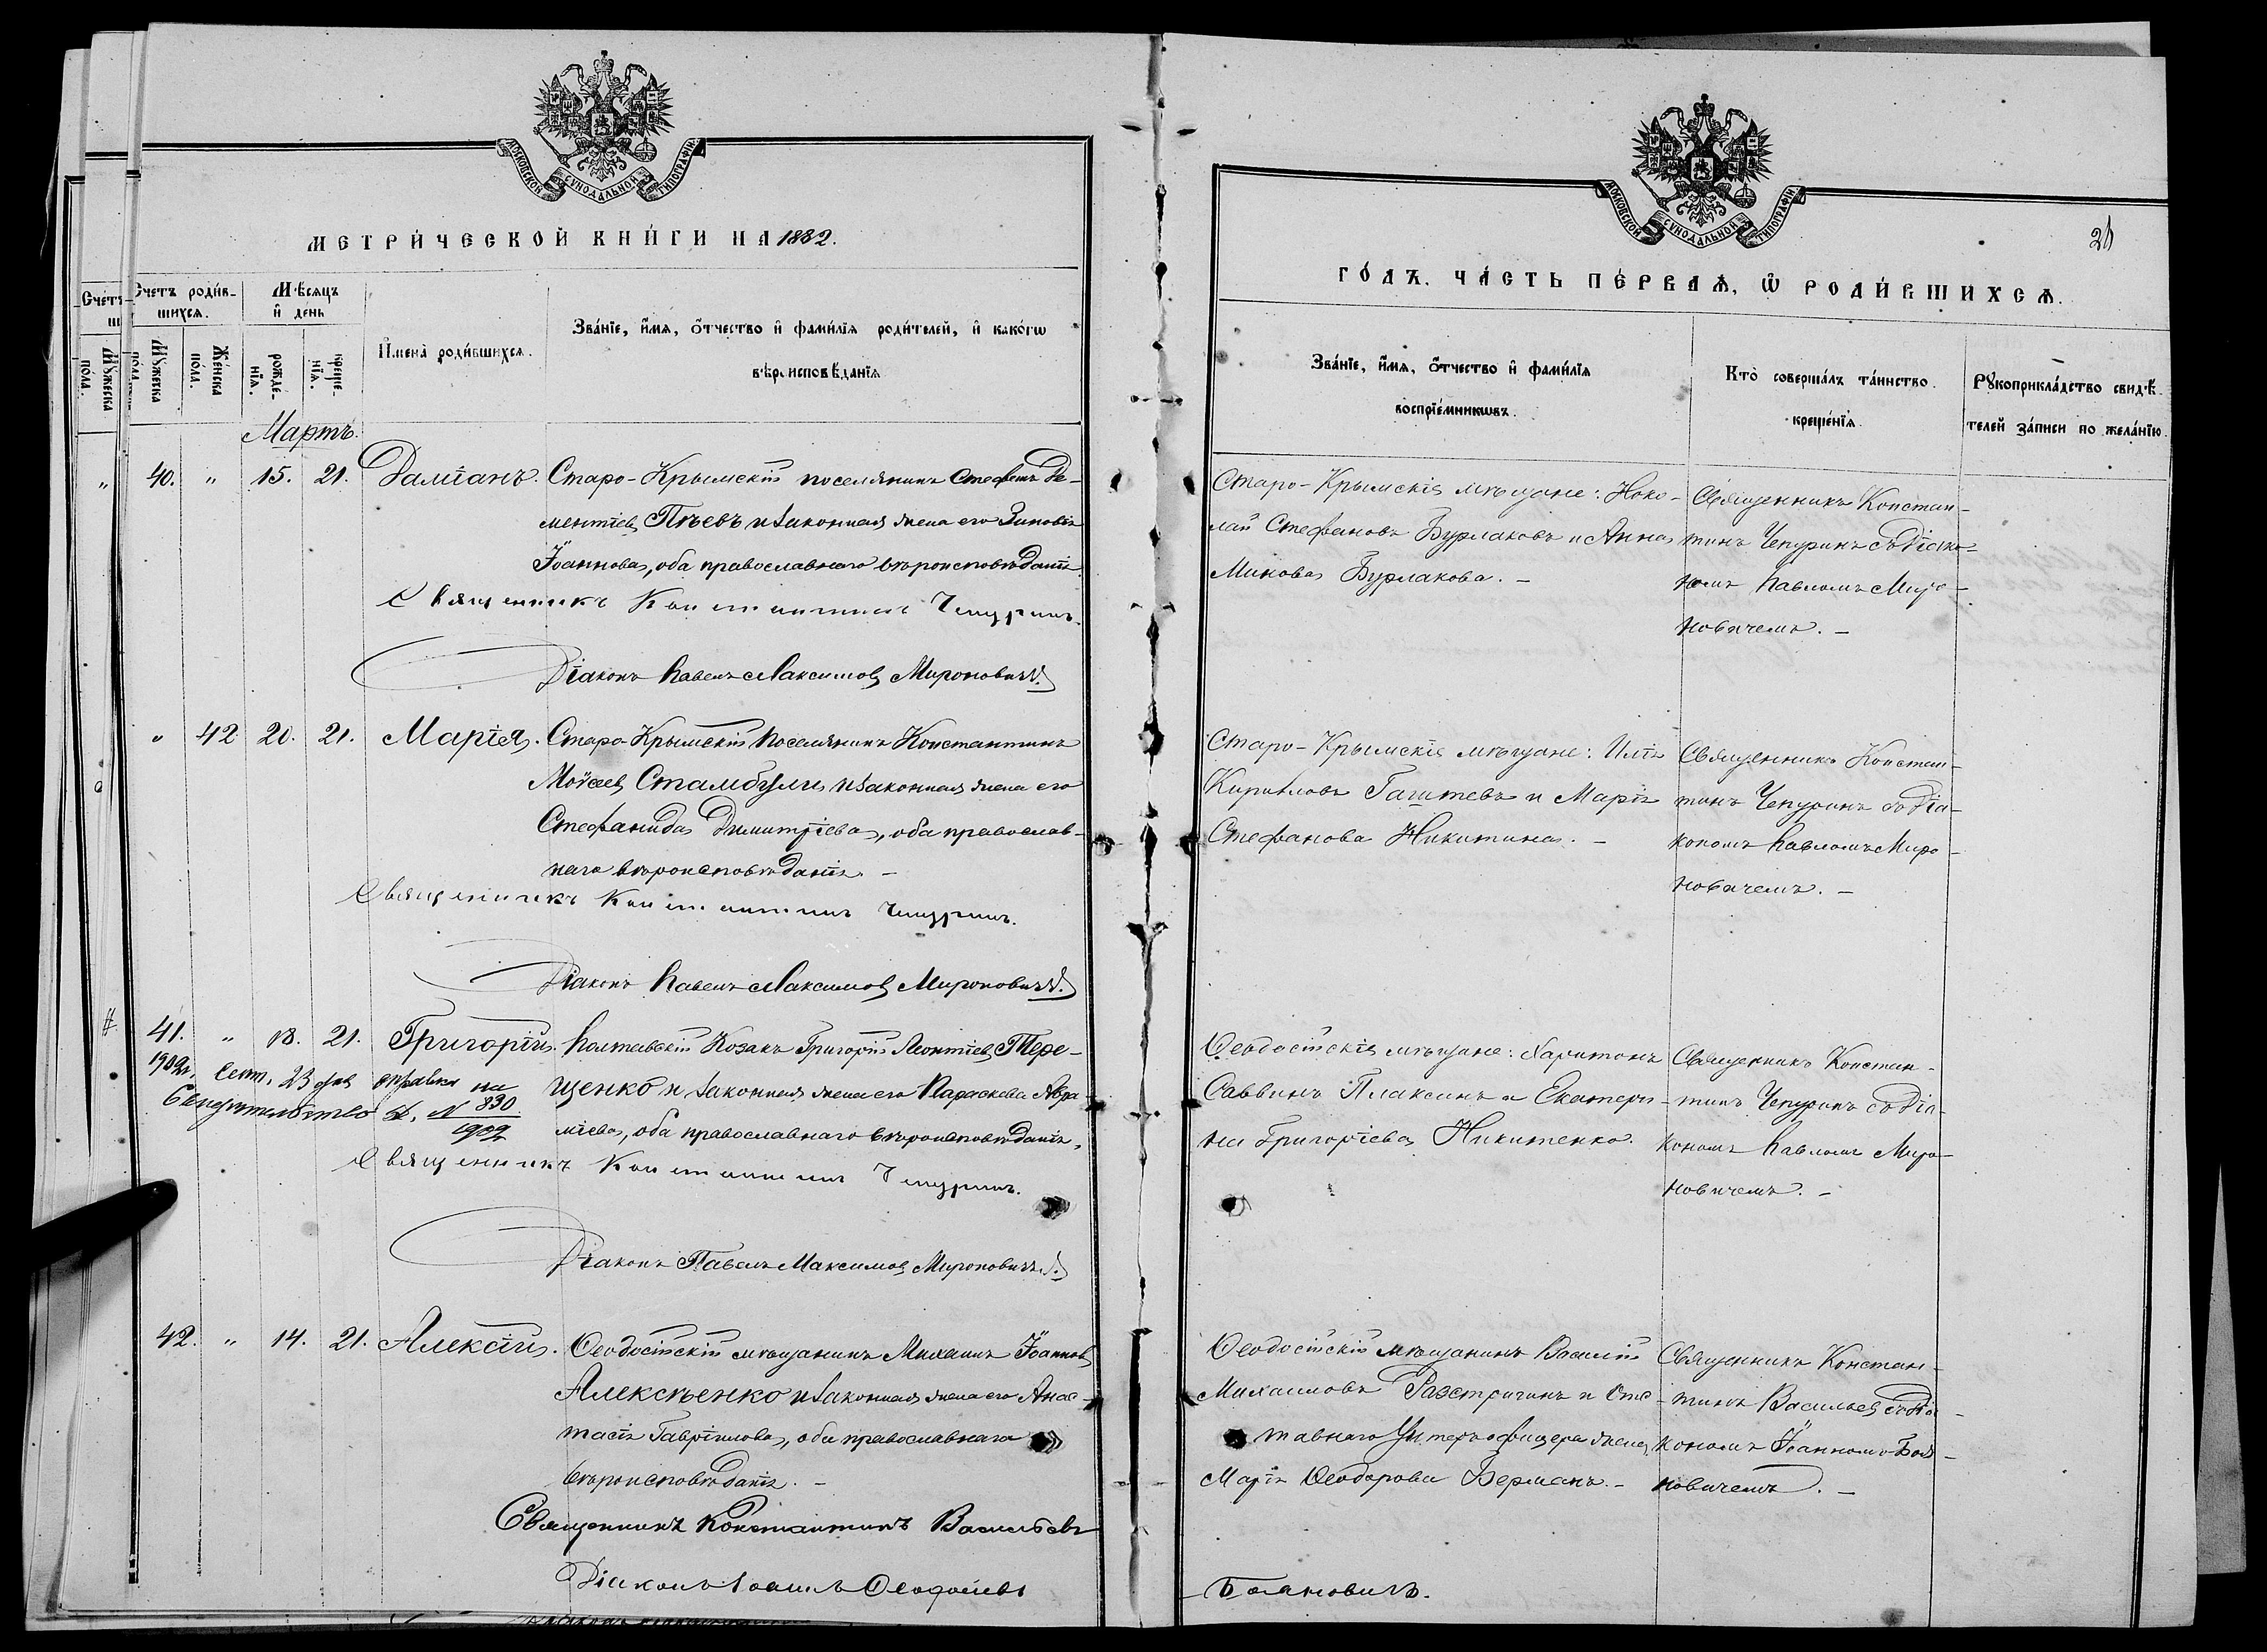 МОСКОВСКОЙ СѴНОДАЛЬНОЙ ТИПОГРАФІИ
МЕТРИ́ЧЕСКОЙ КНИ́ГИ НА 1882.
Счетъ роди́вшихся.
Мѣ́сяцъ и҆ де́нь
Мꙋ́жеска по́ла.
Же́нска по́ла.
рожде́нїѧ.
креще́нїѧ.
И҆мена̀ роди́вшихсѧ.
Зва́нїе, и҆́мѧ, ѻ҆́тчество и҆ фами́лїѧ роди́телей, и҆ како́гѡ
вѣроисповѣ́данїѧ
Мартъ.
„ 40. „ 15. 21. Даміанъ. Старо-Крымскій поселянинъ Стефанъ Де-
ментіевъ Пѣевъ и законная жена его Зиновія
Іоаннова, оба православнаго вѣроисповѣданія.
Священникъ Константинъ Чепуринъ.
Діаконъ Павелъ Максимовъ Мироновичъ.
„ 42 20. 21. Марія. Старо-Крымскій Поселянинъ Константинъ
Моѵсеевъ Стамбули и законная жена его
Стефанида Димитріева, оба православ-
наго вѣроисповѣданія. –
Священникъ Константинъ Чепуринъ.
Діаконъ Павелъ Максимовъ Мироновичъ.
41. „ 18. 21. Григорій. Полтавскій Козакъ Григорій Леонтіевъ Тере-
щенко и законная жена его Параскева Авра-
міева, оба православнаго вѣроисповѣданія.
1902г. Сент. 23 дня справка на
Свидѣтельство № 830
1902
Священникъ Константинъ Чепуринъ.
Діаконъ Павелъ Максимовъ Мироновичъ.
42. „ 14. 21. Алексій. Ѳеодосійскій мѣщанинъ Михаилъ Іоанновъ
Алексѣенко и законная жена его Анас-
тасія Гавріилова, оба православнаго
вѣроисповѣданія. –
Священникъ Константинъ Васильевъ
Діаконъ Іоаннъ
МОСКОВСКОЙ СѴНОДАЛЬНОЙ ТИПОГРАФІИ
ГО́ДЪ. ЧА́СТЬ ПЕ́РВАѦ, Ѡ҆ РОДИ́ВШИХСѦ.
Зва́нїе, и҆́мѧ, ѻ҆́тчество и҆ фами́лїѧ
воспрїе́мникѡвъ.
Кто̀ соверша́лъ та́инство
креще́нїѧ.
Рꙋкоприкла́дство свидѣ́-
телей за́писи по жела́нїю.
Старо-Крымскіе мѣщане: Нико-
лай Стефановъ Бурлаковъ и Анна
Минова Бурлакова. –
Священникъ Констан-
тинъ Чепуринъ съ Діако-
номъ Павломъ Миро-
новичемъ. –
Старо-Крымскіе мѣщане: Илія
Кирилловъ и Марія
Стефанова Никитина. –
Священникъ Констан-
тинъ Чепуринъ съ Діа-
кономъ Павломъ Миро-
новичемъ. –
Ѳеодосійскіе мѣщане: Харитонъ
Саввинъ Плаксинъ и Екатери-
на Григоріева Никитенко.
Священникъ Констан-
тинъ Чепуринъ съ Діа-
кономъ Павломъ Миро-
новичемъ. –
Ѳеодосійскій мѣщанинъ Василій
Михаиловъ Разстригинъ и Отс-
тавнаго Унтеръ офицера жена
Марія Ѳеодорова Берманъ. –
Священникъ Констан-
тинъ Васильевъ съ Діа-
кономъ Іоанномъ Боя-
новичемъ. –
Бояновичъ.